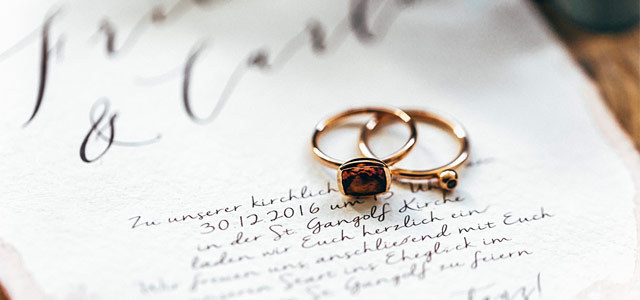 &
Zu unserer kirchlich
30.12.2016 um
in der St Gangolf Kirche
laden wir Euch herzlich ein
Wir freuen uns anschließend mit Euch
unseren Start ins Eheglück im
St Gangolf zu feiern